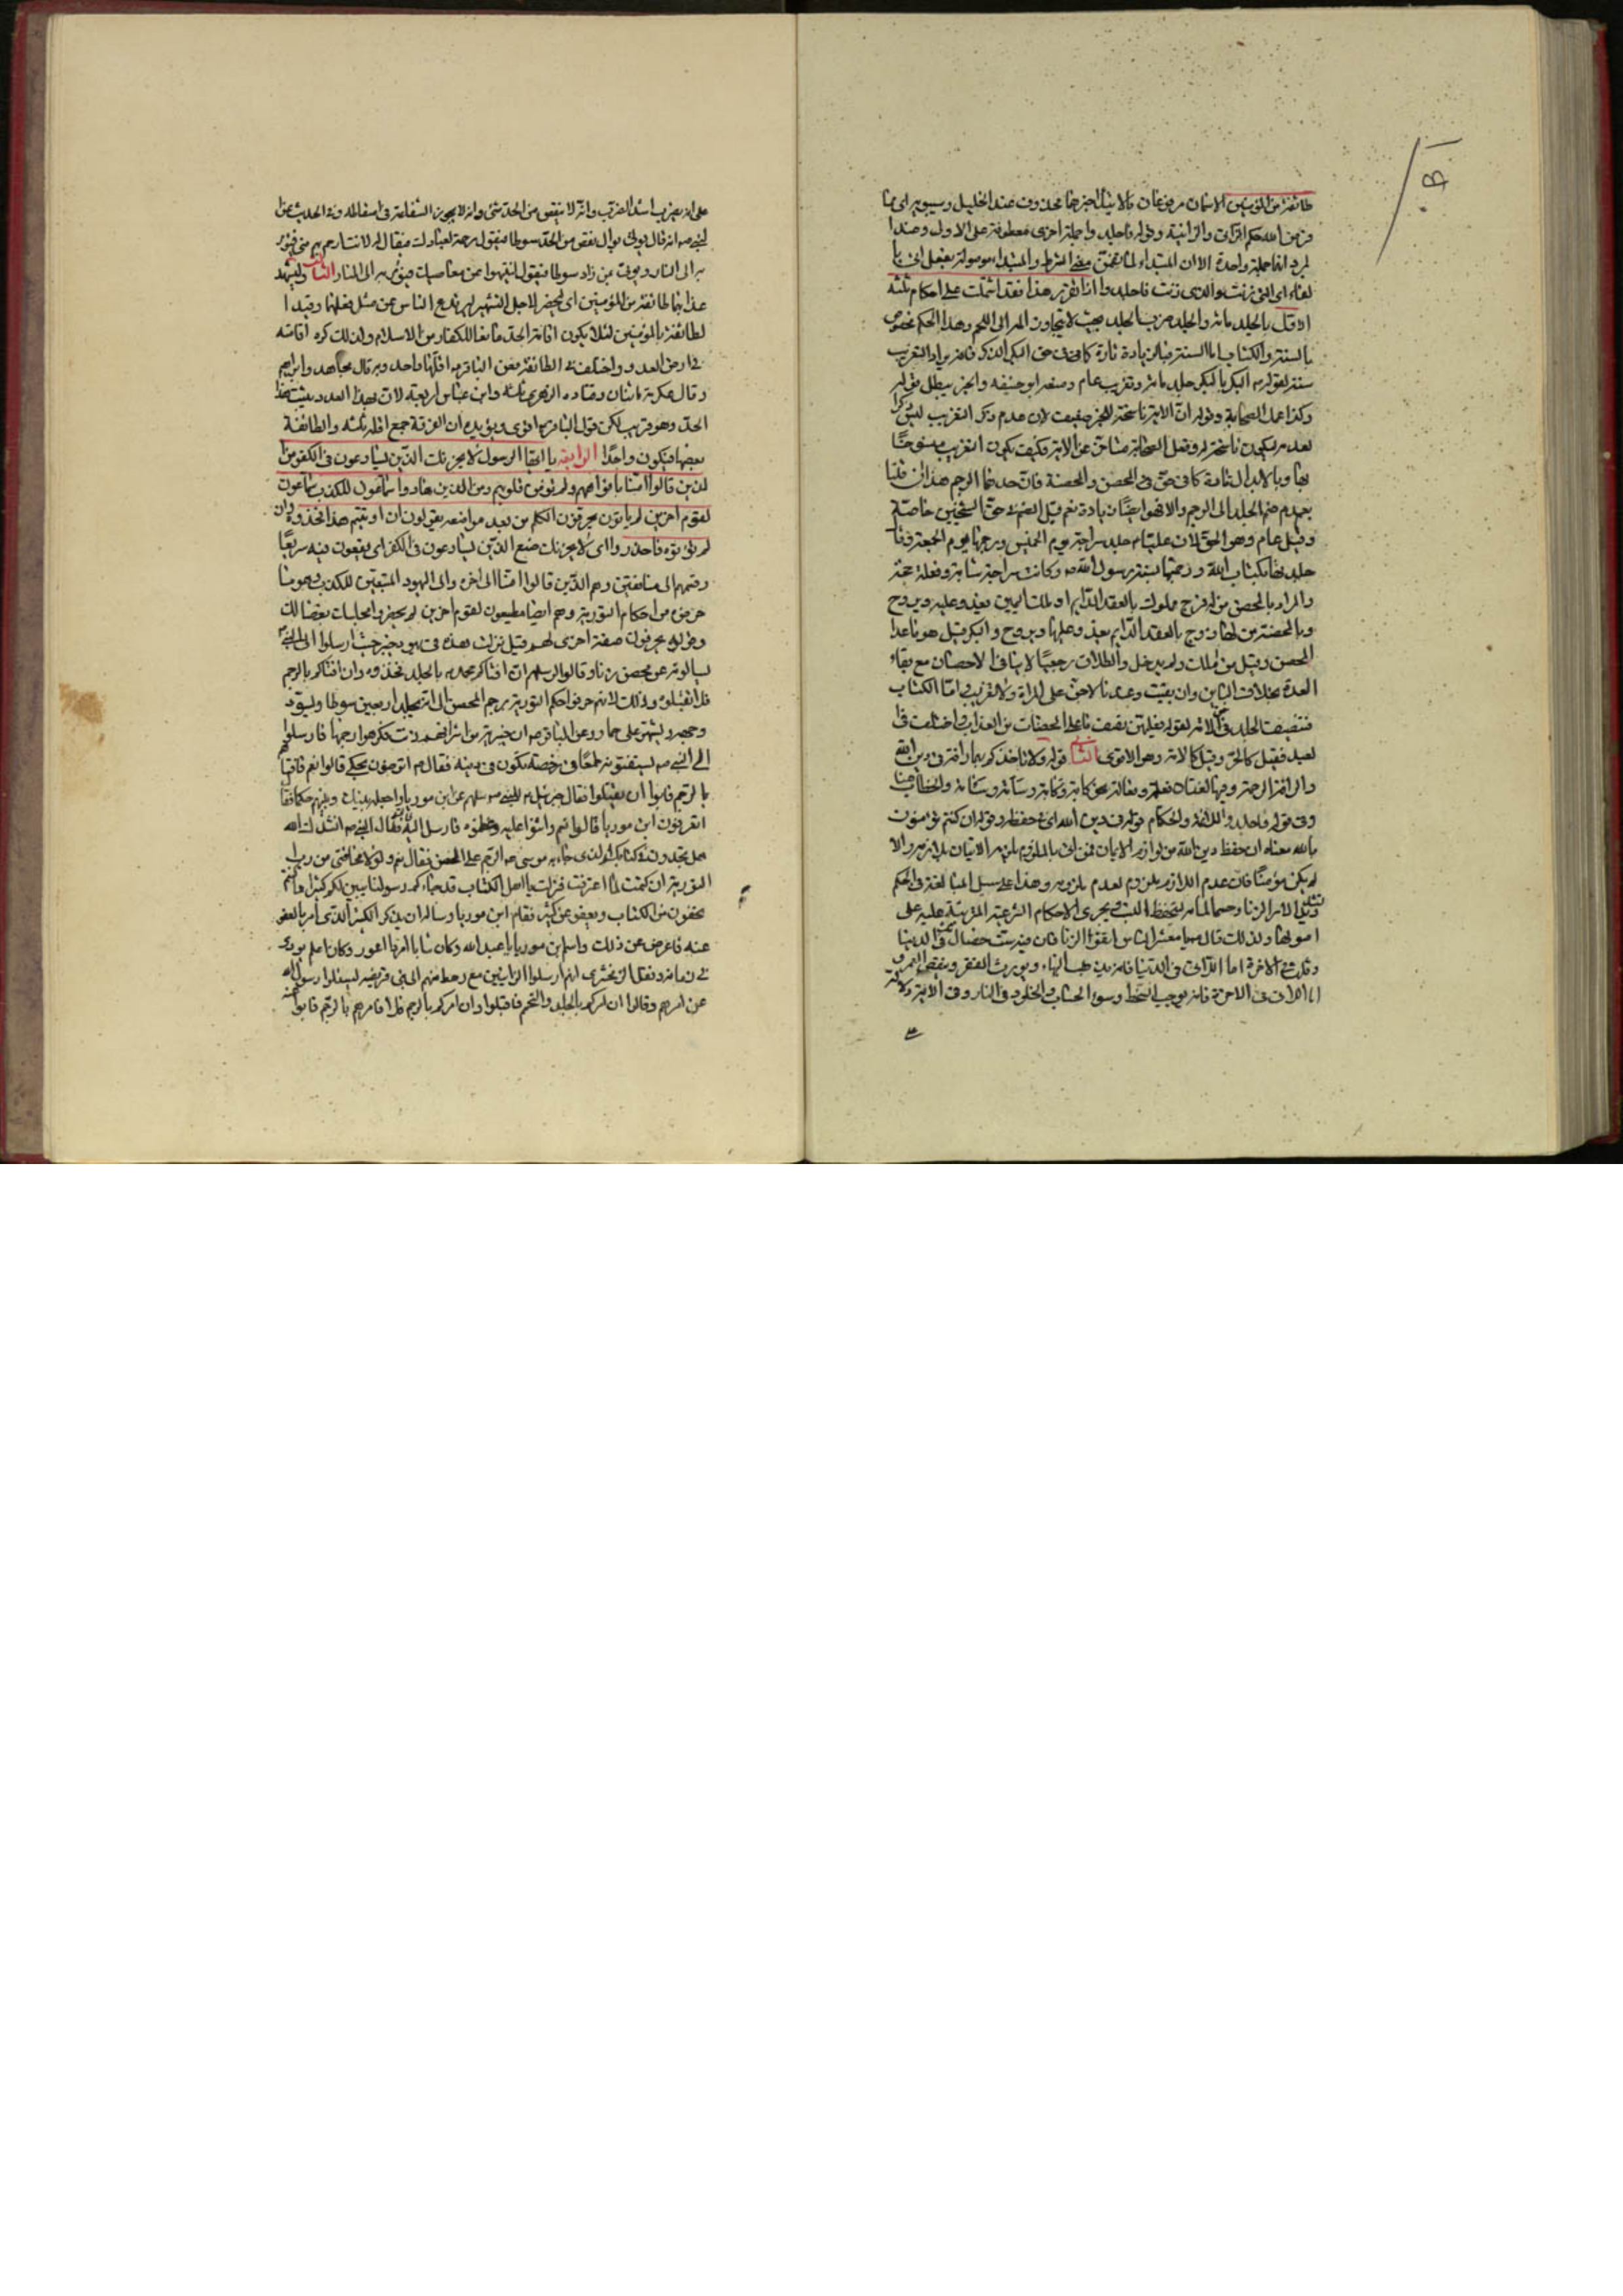 طائفة من المؤمنين الاسمان مرفوعان بالابتداء خبرهما محذوف عند الخليل وسيبويه اى مما
فرض الله حكم الزانى والزانية وقوله فاجلدوا جملة اخرى معطوفة على الاول وعند
المبرد انها جملة واحدة الا ان المبتداء لما تضمن معنى الشرط والمبتداء موصولة بفعل اتى بال
لفاء اى التى زنت والذى زنى فاجلدوا اذا تقرر هذا فقد اشتملت على احكام ثلثه
الاول الجلد مائة والجلد ضرب الجلد بحيث لا يتجاوز الم الى اللحم وهذا الحكم مخصوص
بالسنة والكتاب اما السنة فبالزيادة تارة كما فى حق البكر الذكر فانه يزاد التغريب
سنة لقوله البكر بالبكر جلد مائة وتغريب عام ومنعه ابو حنيفه والخبر يبطل قوله
وكذا عمل الصحابة وقوله ان الاية ناسخة للخبر ضعيف لان عدم ذكر التغريب ليس ذكرا
لعدمه ليكون ناسخة له وفعل الصحابة متاخر عن الاية فكيف يكون التغريب منسوخا
بها وبالابدال تارة كما فى حق المحصن والمحصنة فان حدهما الرجم هذا ان قلنا
بعدم ضم الجلد الى الرجم والا فهو ايضا زيادة نعم قيل الضم فى حق الشيخين خاصة
وقيل عام وهو الحق لان عليا جلد سراجة يوم الخميس ورجمها يوم الجمعة وقال
جلدتها بكتاب الله ورجمتها بسنة رسول الله وكانت سراجة شابة وفعله حجة
والمراد بالمحصن من له فرج مملوك بالعقد الدايم او ملك اليمين يغدو عليه ويروح
وبالمحصنة من لها زوج بالعقد الدايم يغدو عليها ويروح والبكر قيل هو ماعدا
المحصن وقيل من املك ولم يدخل والطلاق رجعيا لا ينافى الاحصان مع بقاء
العدة بخلاف الباين وان بقيت وعندنا لا جز على المراة ولا تغريب اما الكتاب
فتنصيف الجلد فى الامة لقوله فعليهن نصف ما على المحصنات من العذاب واختلف فى
العبد فقيل كالحر وقيل كالامة وهو الاقوى الثانى قوله ولا تاخذكم بهما رافة فى دين الله
والرافة الرحمة وفيها لغتان فعلة وفعالة نحو كابة وكآبة وسامة وسآمة والخطاب هنا
وفى قوله فاجلدوا للائمة والحكام قوله فى دين الله اى فى حفظه وقوله ان كنتم تؤمنون
بالله معناه ان حفظ دين الله من لوازم الايمان فمن اتى بالملزوم يلزمه الاتيان بلازمه والا
لم يكن مؤمنا فان عدم اللازم يلزم لعدم ملزومه وهذا على سبيل المبالغة فى الحكم
وتثقيل الامر الزنا وحسما لمادته لتحفظ النسب ويجرى الاحكام الشرعية المترتبة عليه على
اصولها ولذلك قال يا معشر الناس اتقوا الزنا فان فيه ست خصال ثلث فى الدنيا
وثلث فى الاخرة اما اللاتى فى الدنيا فانه يذهب البهاء ويورث الفقر وينقص العمر و
اما اللاتى فى الاخرة فانه يوجب السخط وسوء الحساب والخلود فى النار وفى الاية دلالة
على انه يضرب اشد الضرب وانه لا ينقص من الحد شئ وانه لا يجوز الشفاعة فى اسقاطه وفى الحديث عن
النبى انه قال يؤتى بوال نقص من الحد سوطا فيقول رحمة لعبادك فيقال له لانت ارحم بهم منى فيؤمر
به الى النار ويؤتى بمن زاد سوطا فيقول لينتهوا عن معاصيك فيؤمر به الى النار الثالث وليشهد
عذابهما طائفة من المؤمنين اى ليحضر لاجل التشهير ليرتدع الناس عن مثل فعلهما وقيد ا
لطائفة بالمؤمنين لئلا يكون اقامة الحد مانعا للكفار من الاسلام ولذلك كره اقامته
فى ارض العدو واختلف فى الطائفة فعن الباقر اقلها واحد وبه قال مجاهد وابراهيم
وقال عكرمة اثنان وقتاده والزهرى ثلثة وابن عباس اربعة لان بهذا العدد يثبت هذا
الحد وهو قريب لكن قول الباقر اقوى ويؤيده ان الفرقة جمع اقله ثلثه والطائفة
بعضها فيكون واحدا الرابعة يا ايها الرسول لا يحزنك الذين يسارعون فى الكفر من ا
لذين قالوا امنا بافواههم ولم تؤمن قلوبهم ومن الذين هادوا سماعون للكذب سماعون
لقوم اخرين لم ياتوك يحرفون الكلم من بعد مواضعه يقولون ان اوتيتم هذا فخذوه وان
لم تؤتوه فاحذروا اى لا يحزنك صنع الذين يسارعون فى الكفر اى يقعون فيه سريعا
وقسمهم الى منافقين وهم الذين قالوا امنا الى اخره والى اليهود المتبعين للكذب وهو ما
حرفوه من احكام التورية وهم ايضا مطيعون لقوم اخرين لم يحضروا مجلسك بغضا لك
وقوله يحرفون صفة اخرى لهم قيل نزلت هذه فى يهود خيبر حيث ارسلوا الى النبى
يسالونه عن محصن زنا وقالوا لرسلهم ان افتاكم محمد بالجلد فخذوه وان افتاكم بالرجم
فلا تقبلوه وذلك لانهم حرفوا حكم التورية برجم المحصن الى انه يجلد اربعين سوطا ويسود
وجهه ويشهر على حمار وعن الباقر ان خيبرية من اشرافهم زنت فكرهوا رجمها فارسلوا
الى النبى يستفتونه طمعا فى رخصة تكون فى دينه فقال اترضون بحكمى قالوا نعم فافتى
بالرجم فابوا ان يقبلوا فقال جبرئيل للنبى سلهم عن ابن صوريا واجعله بينك وبينهم حكما فقال
اتعرفون ابن صوريا قالوا نعم واثنوا عليه وعظموه فارسل اليه فقال النبى انشدك الله
هل تجدون فى كتابكم الذى جاء به موسى الرجم على المحصن فقال نعم ولولا مخافتى من رب
التورية ان كتمت لما اعترفت فنزلت يا اهل الكتاب قد جاءكم رسولنا يبين لكم كثيرا مما كنتم
تخفون من الكتاب ويعفو عن كثير فقام ابن صوريا وساله ان يذكر الكثير الذى امر بالعفو
عنه فاعرض عن ذلك واسلم ابن صوريا يا عبد الله وكان شابا امردا اعور وكان اعلم يهودى
فى زمانه ونقل الزمخشرى انهم ارسلوا الزانيين مع رهط منهم الى بنى قريضه ليسئلوا رسول الله
عن امرهم وقالوا ان امركم بالجلد والتحميم فاقبلوا وان امركم بالرجم فلا فامرهم بالرجم فابوا